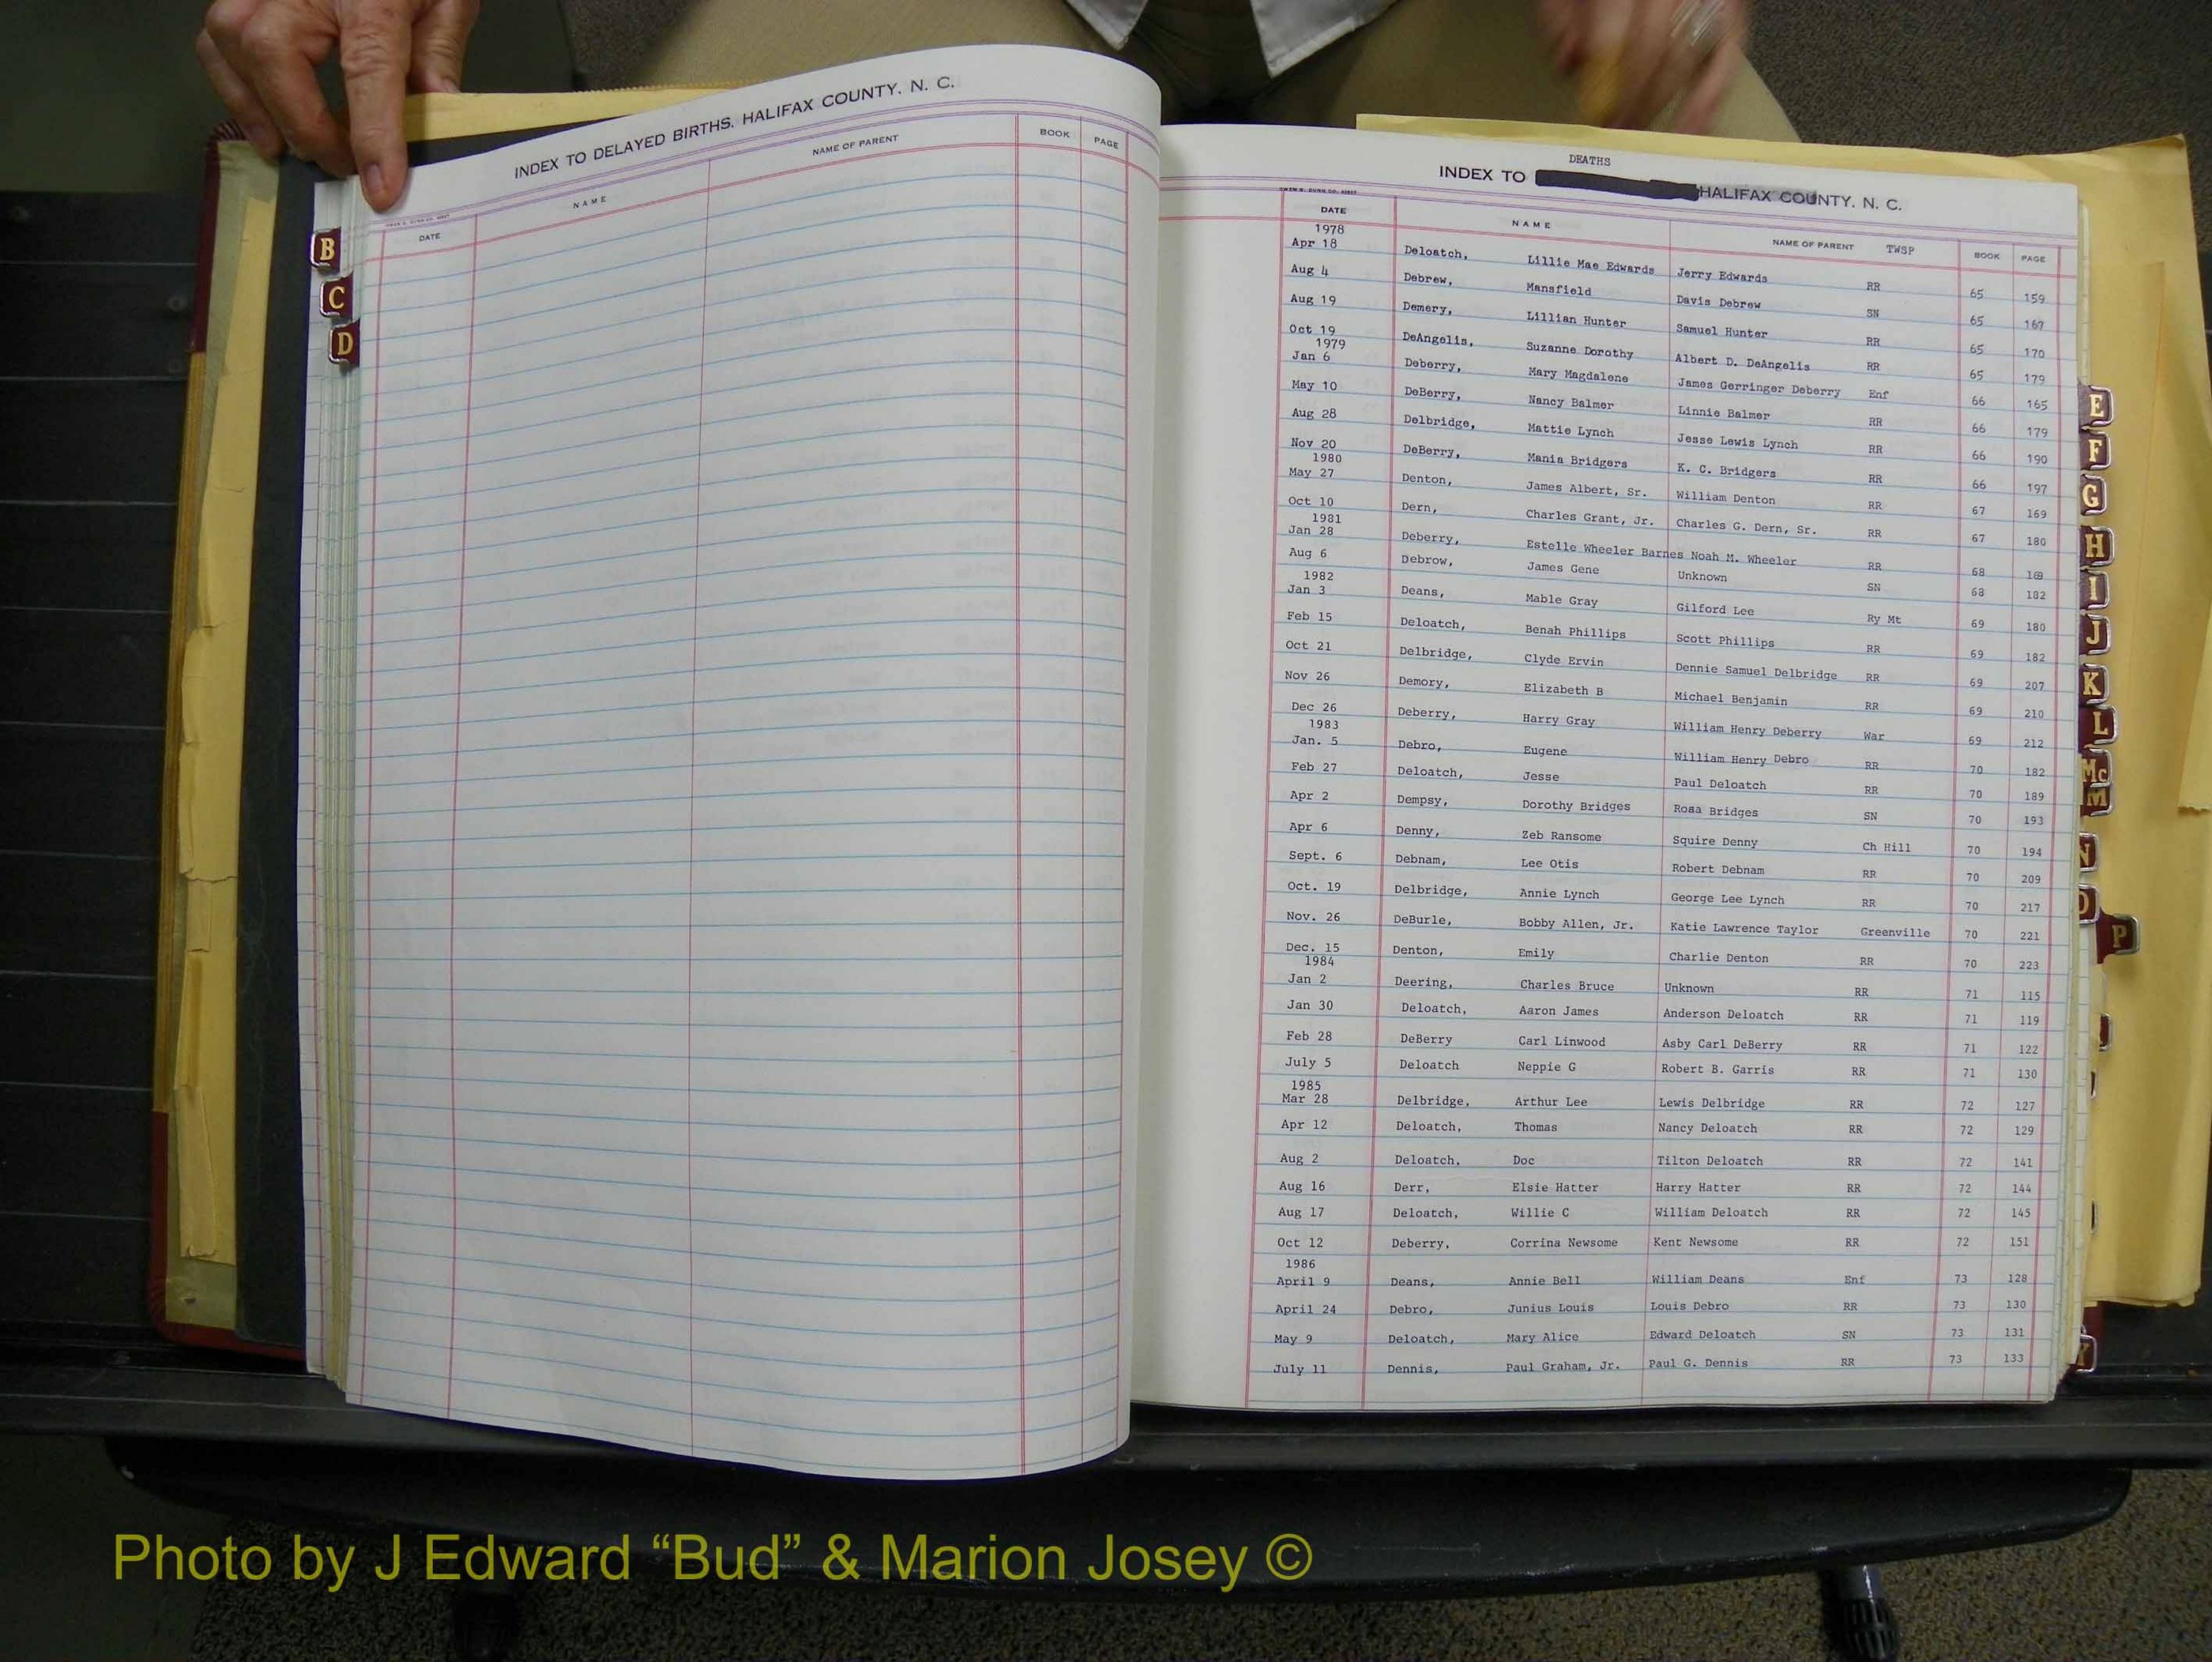 INDEX TO DELAYED BIRTHS, HALIFAX COUNTY, N. C.
DATE NAME NAME OF PARENT BOOK PAGE
B
C
D
DEATHS
INDEX TO HALIFAX COUNTY, N. C.
DATE NAME NAME OF PARENT TWSP BOOK PAGE
1978
Apr 18 Deloatch, Lillie Mae Edwards Jerry Edwards RR 65 159
Aug 4 Debrew, Mansfield Davis Debrew SN 65 167
Aug 19 Demery, Lillian Hunter Samuel Hunter RR 65 170
Oct 19 DeAngelis, Suzanne Dorothy Albert D. DeAngelis RR 65 179
1979
Jan 6 Deberry, Mary Magdalene James Gerringer Deberry Enf 66 165
May 10 DeBerry, Nancy Balmer Linnie Balmer RR 66 179
Aug 28 Delbridge, Mattie Lynch Jesse Lewis Lynch RR 66 190
Nov 20 DeBerry, Mania Bridgers K. C. Bridgers RR 66 197
1980
May 27 Denton, James Albert, Sr. William Denton RR 67 169
Oct 10 Dern, Charles Grant, Jr. Charles G. Dern, Sr. RR 67 180
1981
Jan 28 Deberry, Estelle Wheeler Barnes Noah M. Wheeler RR 68 169
Aug 6 Debrow, James Gene Unknown SN 68 182
1982
Jan 3 Deans, Mable Gray Gilford Lee Ry Mt 69 180
Feb 15 Deloatch, Benah Phillips Scott Phillips RR 69 182
Oct 21 Delbridge, Clyde Ervin Dennie Samuel Delbridge RR 69 207
Nov 26 Demory, Elizabeth B Michael Benjamin RR 69 210
Dec 26 Deberry, Harry Gray William Henry Deberry War 69 212
1983
Jan. 5 Debro, Eugene William Henry Debro RR 70 182
Feb 27 Deloatch, Jesse Paul Deloatch RR 70 189
Apr 2 Dempsy, Dorothy Bridges Rosa Bridges SN 70 193
Apr 6 Denny, Zeb Ransome Squire Denny Ch Hill 70 194
Sept. 6 Debnam, Lee Otis Robert Debnam RR 70 209
Oct. 19 Delbridge, Annie Lynch George Lee Lynch RR 70 217
Nov. 26 DeBurle, Bobby Allen, Jr. Katie Lawrence Taylor Greenville 70 221
Dec. 15 Denton, Emily Charlie Denton RR 70 223
1984
Jan 2 Deering, Charles Bruce Unknown RR 71 115
Jan 30 Deloatch, Aaron James Anderson Deloatch RR 71 119
Feb 28 DeBerry Carl Linwood Asby Carl DeBerry RR 71 122
July 5 Deloatch Neppie G Robert B. Garris RR 71 130
1985
Mar 28 Delbridge, Arthur Lee Lewis Delbridge RR 72 127
Apr 12 Deloatch, Thomas Nancy Deloatch RR 72 129
Aug 2 Deloatch, Doc Tilton Deloatch RR 72 141
Aug 16 Derr, Elsie Hatter Harry Hatter RR 72 144
Aug 17 Deloatch, Willie C William Deloatch RR 72 145
Oct 12 Deberry, Corrina Newsome Kent Newsome RR 72 151
1986
April 9 Deans, Annie Bell William Deans Enf 73 128
April 24 Debro, Junius Louis Louis Debro RR 73 130
May 9 Deloatch, Mary Alice Edward Deloatch SN 73 131
July 11 Dennis, Paul Graham, Jr. Paul G. Dennis RR 73 133
E
F
G
H
I
J
K
L
Mc
M
N
O
P
Photo by J Edward “Bud” & Marion Josey ©